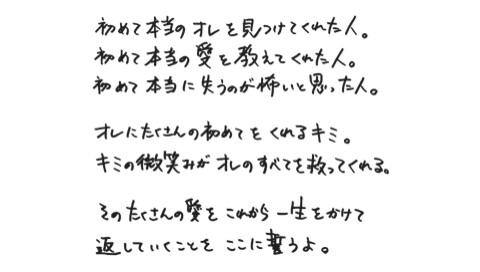 初めて本当のオレを見つけてくれた人。
初めて本当の愛を教えてくれた人。
初めて本当に失うのが怖いと思った人。
オレにたくさんの初めてをくれるキミ。
キミの微笑みがオレのすべてを救ってくれる。
そのたくさんの愛をこれから一生をかけて
返していくことをここに誓うよ。